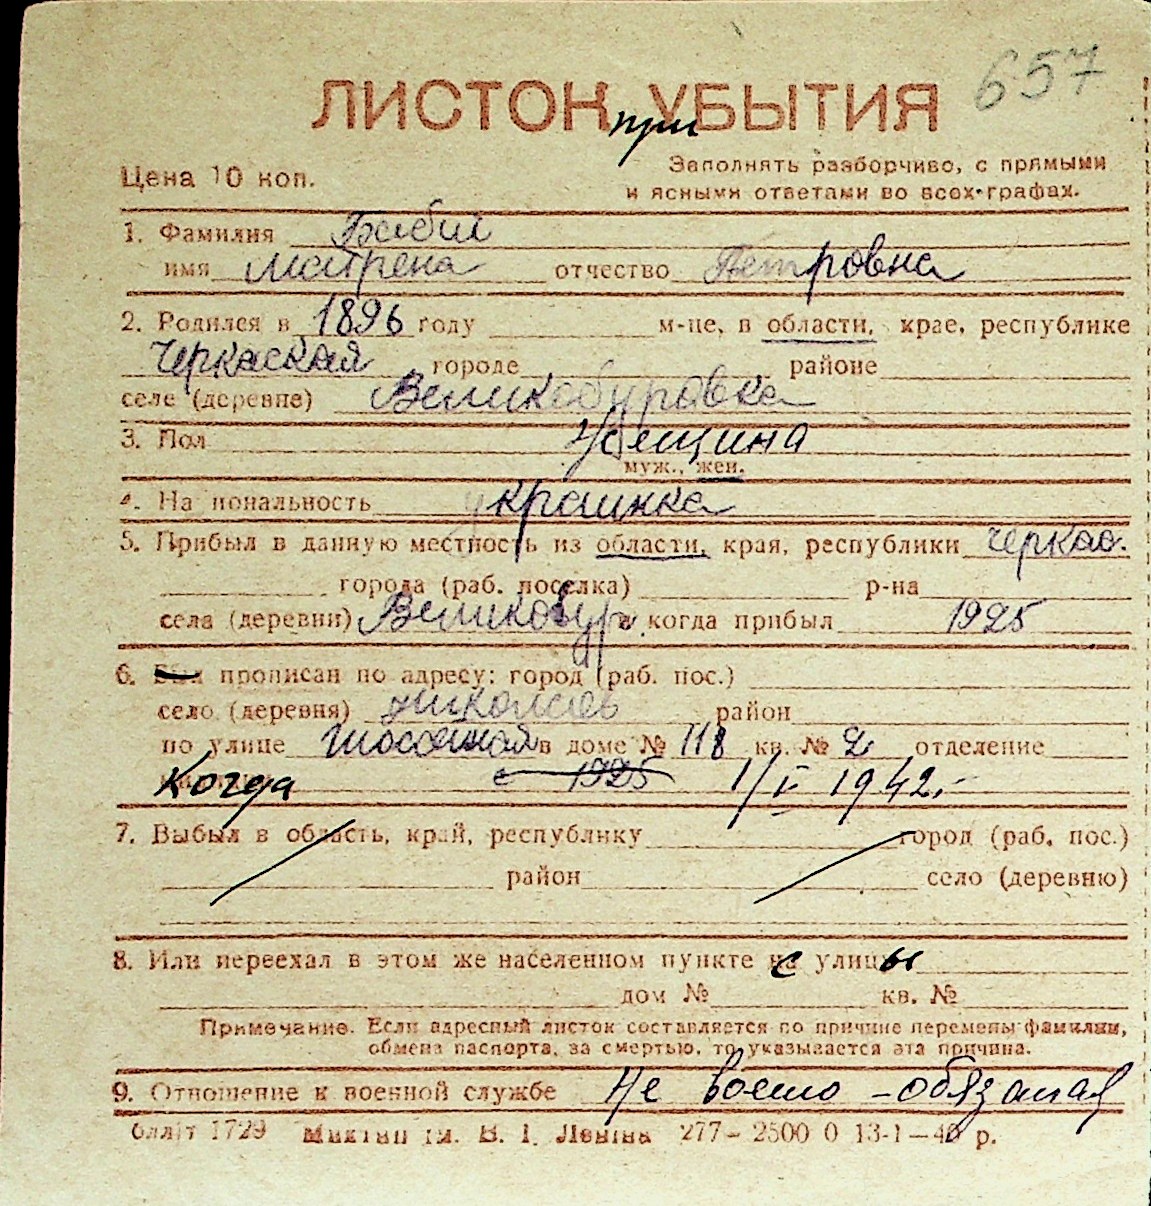 657
ЛИСТОК при УБЫТИЯ
Цена 10 коп.
Заполнять разборчиво, с прямыми
и ясными ответами во всех графах.
1. Фамилия Бабий
имя Матрена отчество Петровна
2. Родился в 1896 году м-це, в области, крае, республике
Черкаская городе районе
селе (деревне) Великобуровка
3. Пол Женщина
муж., жен.
4. Национальность украинка
5. Прибыл в данную местность из области, края, республики Черкас.
города (раб. поселка) р-на
села (деревни) Великобур и когда прибыл 1925
6. Был прописан по адресу: город (раб. пос.)
село (деревня) Николаев район
по улице Шоссейная в доме № 118 кв. № 2 отделение
Когда с 1925 1/V 1942.-
7. Выбыл в область, край, республику город (раб. пос.)
район село (деревню)
8. Или переехал в этом же населенном пункте с улицы
дом № кв. №
Примечание. Если адресный листок составляется по причине перемены фамилии,
обмена паспорта, за смертью, то указывается эта причина.
9. Отношение к военной службе Не военно-обязаная
1729 им. В. І. Леніна 277–2500 0 13-1–40 р.